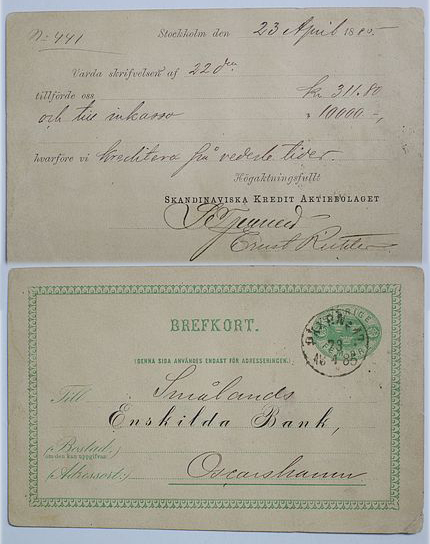 No 441
Stockholm den 23 April 1885.
Varda skrifvelsen af 22 den
tillförde oss kr 311.80
och till inkasso " 10000.-,
hvarföre vi kreditera från vederb. tider.
Högaktningsfullt
SKANDINAVISKA KREDIT AKTIEBOLAGET
Ernst
BREFKORT.
(DENNA SIDA ANVÄNDES ENDAST FÖR ADRESSERINGEN.)
23
85
Till Smålands
Enskilda Bank,
(Bostad,
om den kan uppgifvas)
(Adressort:) Oscarshamn